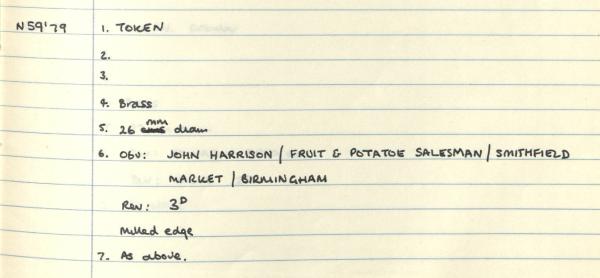 N59'79 1. TOKEN
2.
3.
4. Brass
5. 26 mm diam
6. Obv: JOHN HARRISON / FRUIT & POTATOE SALESMAN / SMITHFIELD
MARKET / BIRMINGHAM
Rev: 3D
Milled edge
7. As above.